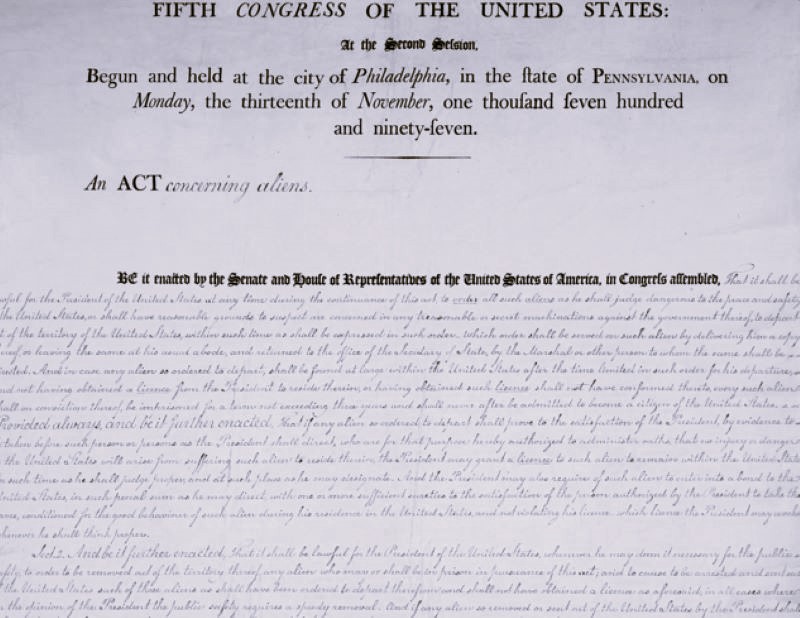 FIFTH CONGRESS OF THE UNITED STATES:
At the Second Session,
Begun and held at the city of Philadelphia, in the ſtate of PENNSYLVANIA, on
Monday, the thirteenth of November, one thouſand ſeven hundred
and ninety-ſeven.
An ACT concerning aliens.
BE it enacted by the Senate and Houſe of Repreſentatives of the United States of America, in Congreſs aſſembled, That it shall be
wful for the President of the United States at any time during the continuance of this act, to order all such aliens as he shall judge dangerous to the peace and safety
the United States, or shall have reasonable grounds to suspect are concerned in any treasonable or secret machinations against the government thereof, to depart
t of the territory of the United States, within such time as shall be expressed in such order, which order shall be served on such alien by delivering him a copy
hereof or leaving the same at his usual abode, and returned to the office of the Secretary of State, by the Marshal or other person to whom the same shall be
rected. And in case any alien so ordered to depart, shall be found at large within the United States after the time limited in such order for his departure,
nd not having obtained a licence from the President to reside therein, or having obtained such licence shall not have conformed thereto, every such alien
hall on conviction thereof, be imprisoned for a term not exceeding three years and shall never after be admitted to become a citizen of the United States.
Provided always, and be it further enacted, that if any alien so ordered to depart shall prove to the satisfaction of the President, by evidence to
taken before such person or persons as the President shall direct, who are for that purpose hereby authorized to administer oaths, that no injury or danger
the United States will arise from suffering such alien to reside therein, the President may grant a licence to such alien to remain within the United States
r such time as he shall judge proper, and at such place as he may designate. And the President may also require of such alien to enter into a bond to the
United States, in such penal sum as he may direct, with one or more sufficient sureties to the satisfaction of the person authorized by the President to take the
ame, conditioned for the good behaviour of such alien during his residence in the United States, and not violating his licence, which licence the President may revoke
whenever he shall think proper.
Sect. 2. And be it further enacted, That it shall be lawful for the President of the United States, whenever he may deem it necessary for the public
afety, to order to be removed out of the territory thereof, any alien who may or shall be in prison in pursuance of this act; and to cause to be arrested and sent out
the United States such of those aliens as shall have been ordered to depart therefrom and shall not have obtained a licence as aforesaid, in all cases where
the opinion of the President, the public safety requires a speedy removal. And if any alien so removed or sent out of the United States by the President shall